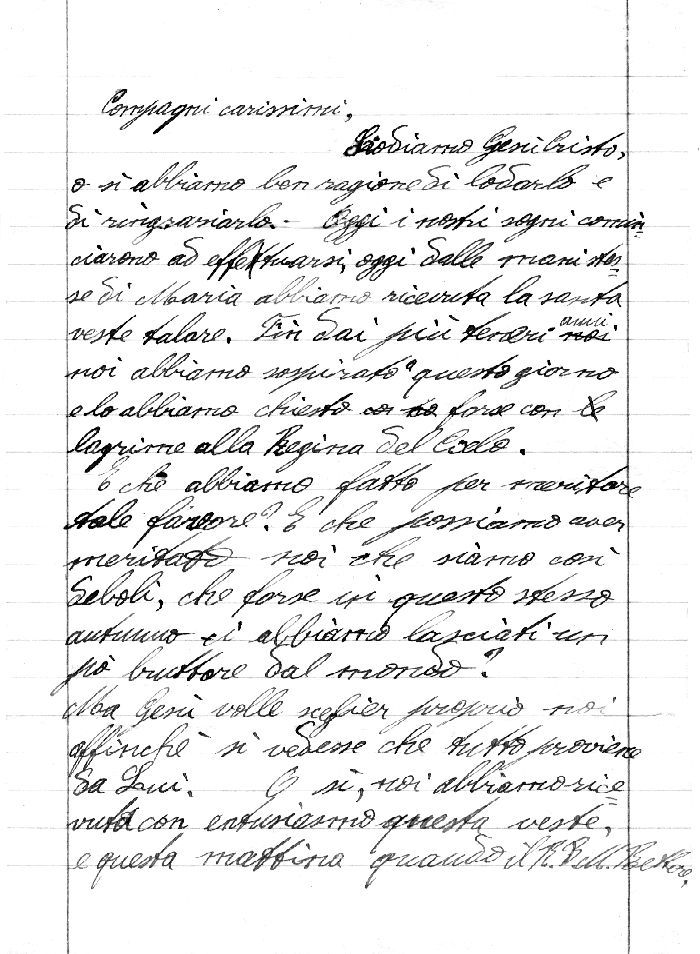 Compagni carissimi,
Lodiamo Gesù Cristo,
o sì abbiamo ben ragione di lodarlo e
di ringraziarlo. - Oggi i nostri sogni comin=
ciarono ad effettuarsi, oggi dalle mani stes=
se di Maria abbiamo ricevuta la santa
veste talare. Fin dai più teneri anni
noi abbiamo sospirato questo giorno
e lo abbiamo chiesto forse con le
lagrime alla Regina del Cielo.
E che abbiamo fatto per meritare
tale favore? E che possiamo aver
meritato noi che siamo così
deboli, che forse in questo stesso
autunno ci abbiamo lasciati un
pò buttare dal mondo?
Ma Gesù volle seglier proprio noi
affinchè si vedesse che tutto proviene
da Lui. O sì, noi abbiamo rice=
vuta con entusiasmo questa veste,
e questa mattina quando il R. P. M.